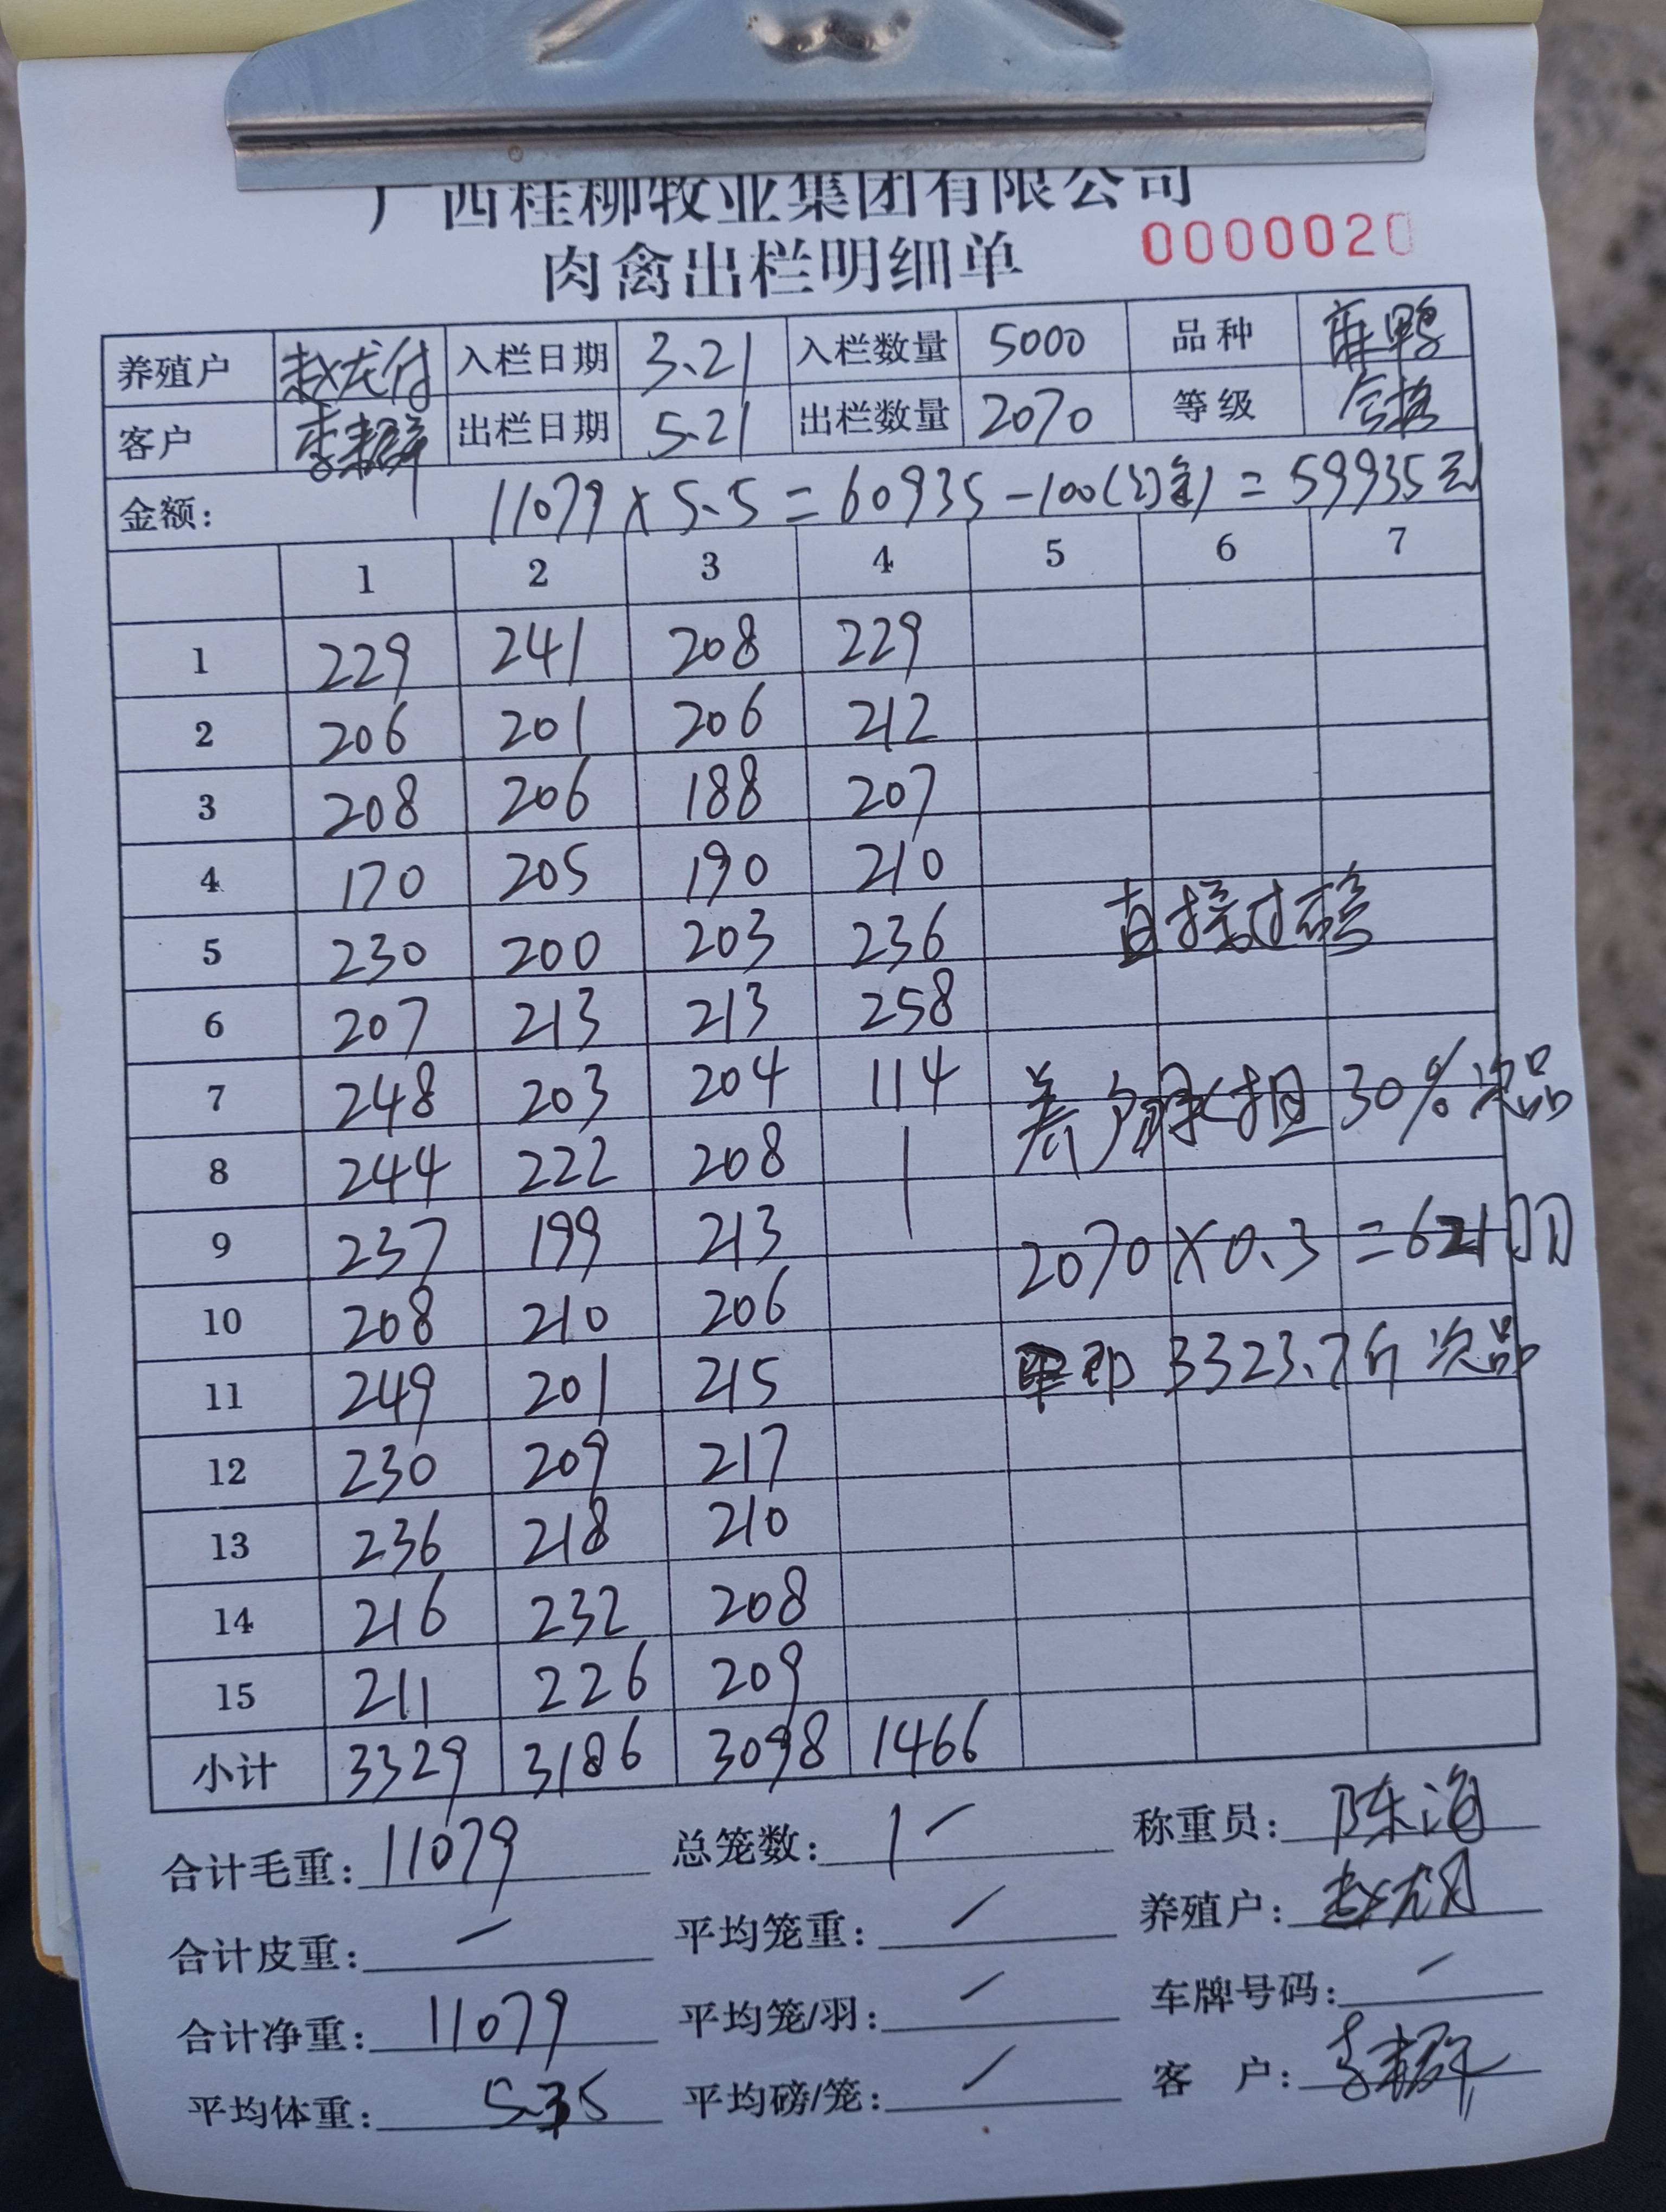 广西桂柳牧业集团有限公司
肉禽出栏明细单 0000020
养殖户 赵龙付 入栏日期 3.21 入栏数量 5000 品种 麻鸭
客户 李耕群 出栏日期 5.21 出栏数量 2070 等级 合格
金额: 11079 x 5.5 = 60935 - 100(订金) = 59935元
1 2 3 4 5 6 7
1 229 241 208 229
2 206 201 206 212
3 208 206 188 207
4 170 205 190 210
5 230 200 203 236 直接过磅
6 207 213 213 258
7 248 203 204 114 养户承担30%次品
8 244 222 208
9 237 199 213 2070 x 0.3 = 621羽
10 208 210 206
11 249 201 215 即 3323.7斤次品
12 230 209 217
13 236 218 210
14 216 232 208
15 211 226 209
小计 3329 3186 3098 1466
合计毛重: 11079 总笼数: / 称重员: 陈海
合计皮重: / 平均笼重: / 养殖户:
合计净重: 11079 平均笼/羽: / 车牌号码: /
平均体重: 5.35 平均磅/笼: / 客 户: 李耕群